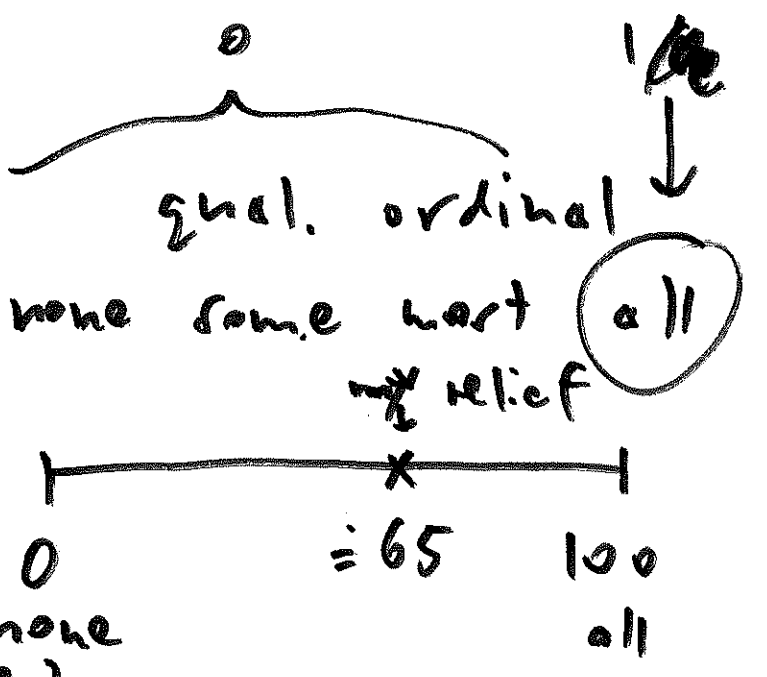 0 1/
qual. ordinal
none some most all
relief
0 ≐ 65 100
none all